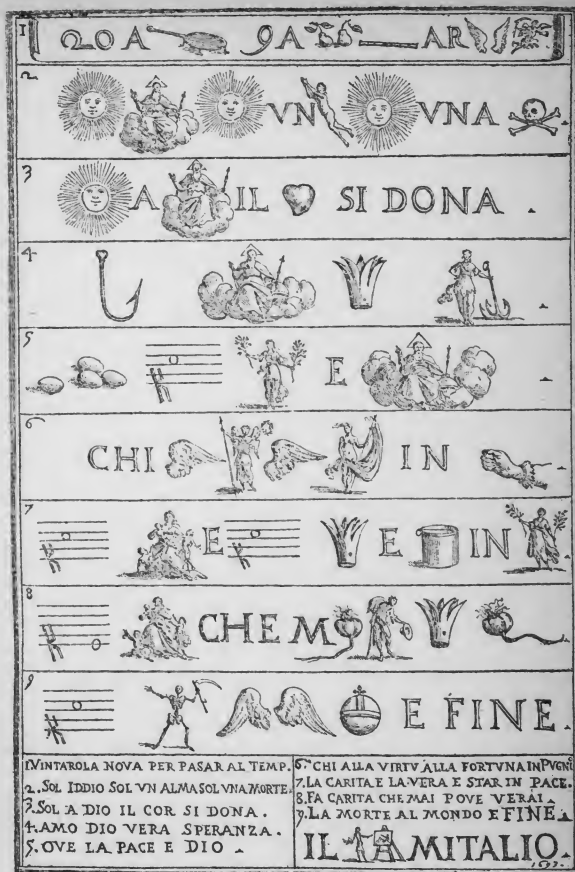 1 20 A 9A AR
2 VN VNA
3 A IL SI DONA
4
5 E
6 CHI IN
7 E E IN
8 CHE M
9 E FINE.
1.VINTAROLA NOVA PER PASAR AL TEMP.
2.SOL IDDIO SOL VN ALMA SOL VNA MORTE.
3.SOL A DIO IL COR SI DONA.
4.AMO DIO VERA SPERANZA.
5.OVE LA PACE E DIO
6.CHI ALLA VIRTV ALLA FORTVNA IN PVGNO
7.LA CARITA E LA VERA E STAR IN PACE.
8.FA CARITA CHE MAI POVE VERAI
9.LA MORTE AL MONDO E FINE
IL MITALIO